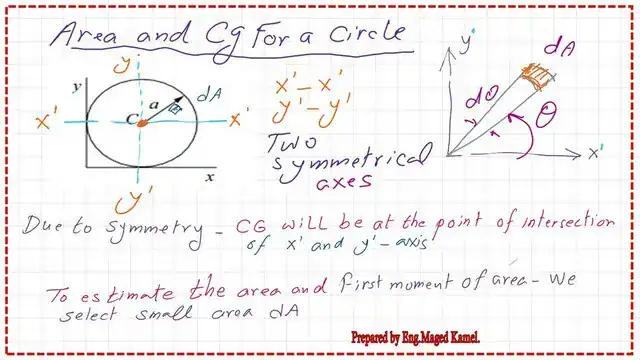 Area and Cg For a Circle
y'
y
a
dA
x'
C
x'
x
y'
x'-x'
y'-y'
Two
symmetrical
axes
y'
dA
dθ
θ
x'
Due to symmetry - CG will be at the point of intersection
of x' and y'-axis
To estimate the area and first moment of area - We
select small area dA
Prepared by Eng.Maged Kamel.